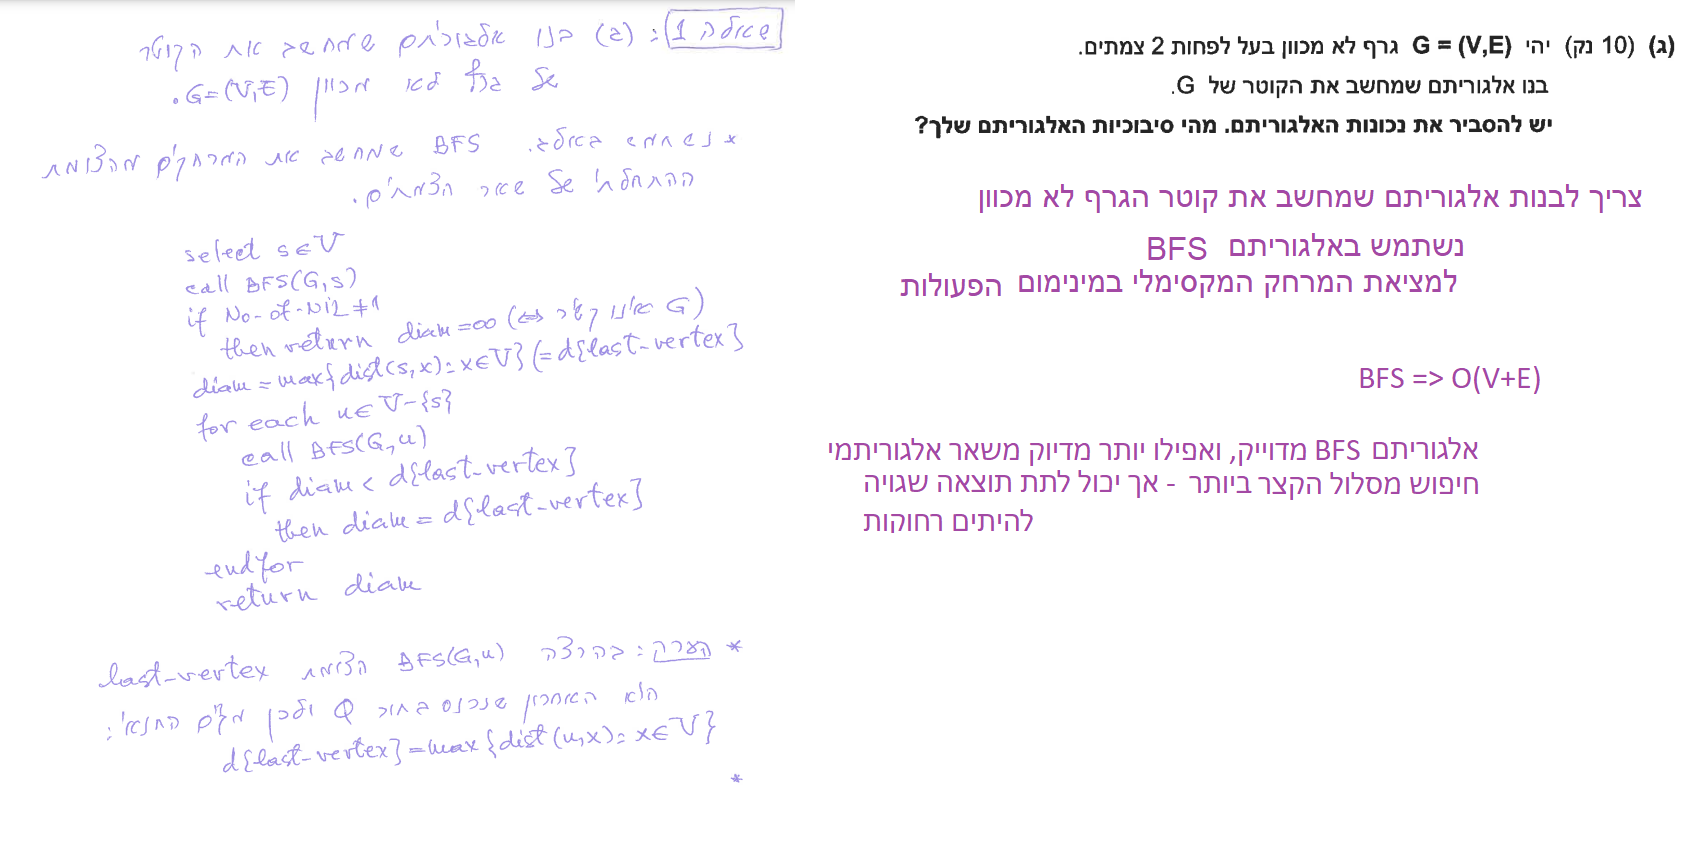 (ג) (10 נק) יהי G = (V,E) גרף לא מכוון בעל לפחות 2 צמתים.
בנו אלגוריתם שמחשב את הקוטר של G.
יש להסביר את נכונות האלגוריתם. מהי סיבוכיות האלגוריתם שלך?
צריך לבנות אלגוריתם שמחשב את קוטר הגרף לא מכוון
נשתמש באלגוריתם BFS
למציאת המרחק המקסימלי במינימום הפעולות
BFS => O(V+E)
אלגוריתם BFS מדוייק, ואפילו יותר מדיוק משאר אלגוריתמי
חיפוש מסלול הקצר ביותר - אך יכול לתת תוצאה שגויה
להיתים רחוקות
שאלה 1 : (ג) בנו אלגוריתם שמחשב את הקוטר
של גרף לא מכוון G=(V,E).
* נשתמש באלג. BFS שמחשב את המרחקים מהצומת
ההתחלתי של שאר הצמתים.
select s∈V
call BFS(G,s)
if No-of-Nil ≠ 1
then return diam = ∞ (⇔ G אינו קשיר)
diam = max{dist(s,x): x∈V} (= d[last-vertex]
for each u∈V-{s}
call BFS(G,u)
if diam < d[last-vertex]
then diam = d[last-vertex]
endfor
return diam
* הערה : בהרצה BFS(G,u) הצומת last-vertex
הוא האחרון שנכנס בתור Q ולכן מקיים התנאי :
d[last-vertex] = max{dist(u,x): x∈V}
*